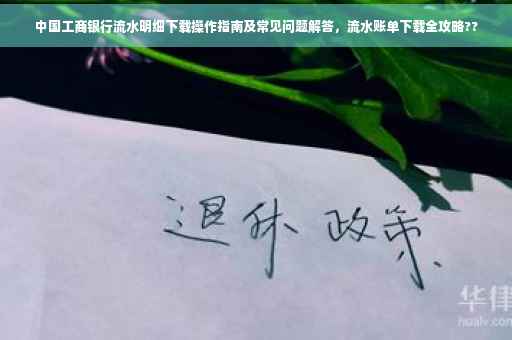 中国工商银行流水明细下载操作指南及常见问题解答，流水账单下载全攻略??
退休 政策
华律
hualv.com